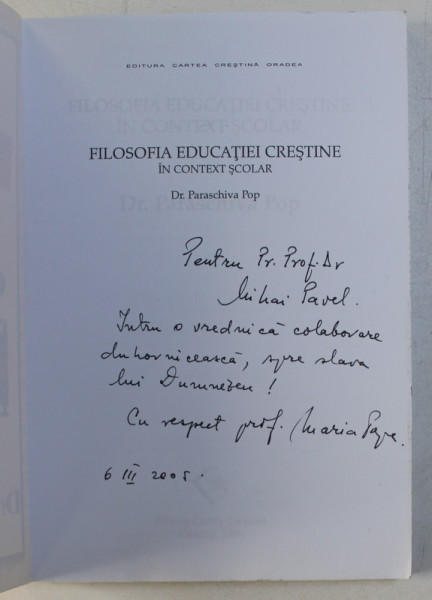 EDITURA CARTEA CREȘTINĂ ORADEA
FILOSOFIA EDUCAŢIEI CREŞTINE
ÎN CONTEXT ŞCOLAR
Dr. Paraschiva Pop
Pentru Pr. Prof. Dr
Mihai Pavel.
Întru o vrednică colaborare
duhovnicească, spre slava
lui Dumnezeu !
Cu respect prof. Maria
6 III 2005.